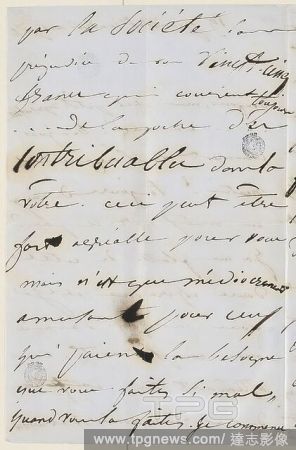 par la Société sans
préjudice de vos Vingt-cinq
francs qui courent toujours
....de la poche des
contribuables dans la
vôtre. ceci peut être
fort agréable pour vous
mais n'est que médiocrement
amusant pour ceux
qui paient la besogne
que vous faites si mal,
quand vous la faites. je commence
TPG
www.tpgnews.com/達志影像